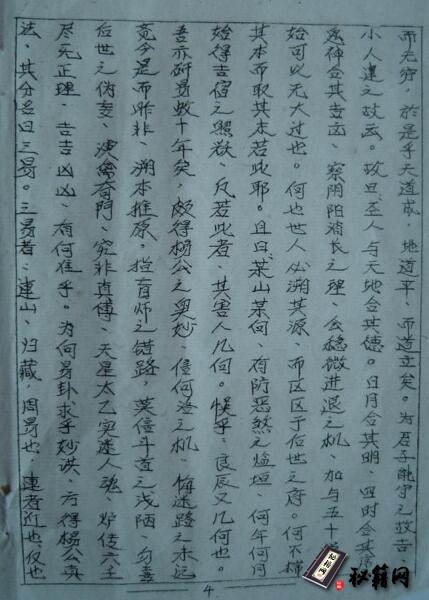 而无穷，於是乎天道成，地道平，而道立矣。为君子能守之故吉
小人违之故凶。故曰：圣人与天地合其德。日月合其明，四时合其
鬼神合其吉凶，察阴阳消长之理，会稳微进退之机，加与五十
始可以无大过也。何也世人必溯其源，而区区于后世之唇。何不
其本而取其末若此耶。且曰：某山某向，有防恶煞之 何年何月
始得吉宿之照，反若此者，其害人几何。悮乎，良辰又几何也。
吾亦研易数十年矣，颇得杨公之奥妙，侵何洛之机，悔迷路之未远
竟今是而昨非，溯本推原，指盲师之错路，莫信斗首之浅陋，勿喜
后世之伪妄，演禽奇门，究非真传，天星太乙实迷人魂，炉传六壬
尽死正理，吉吉凶凶，有何准乎。为何易卦求乎妙诀，方得杨公真
法，其分多曰三易。三易者：连山、归藏、周易也，连者近也仅也
4
秘籍网